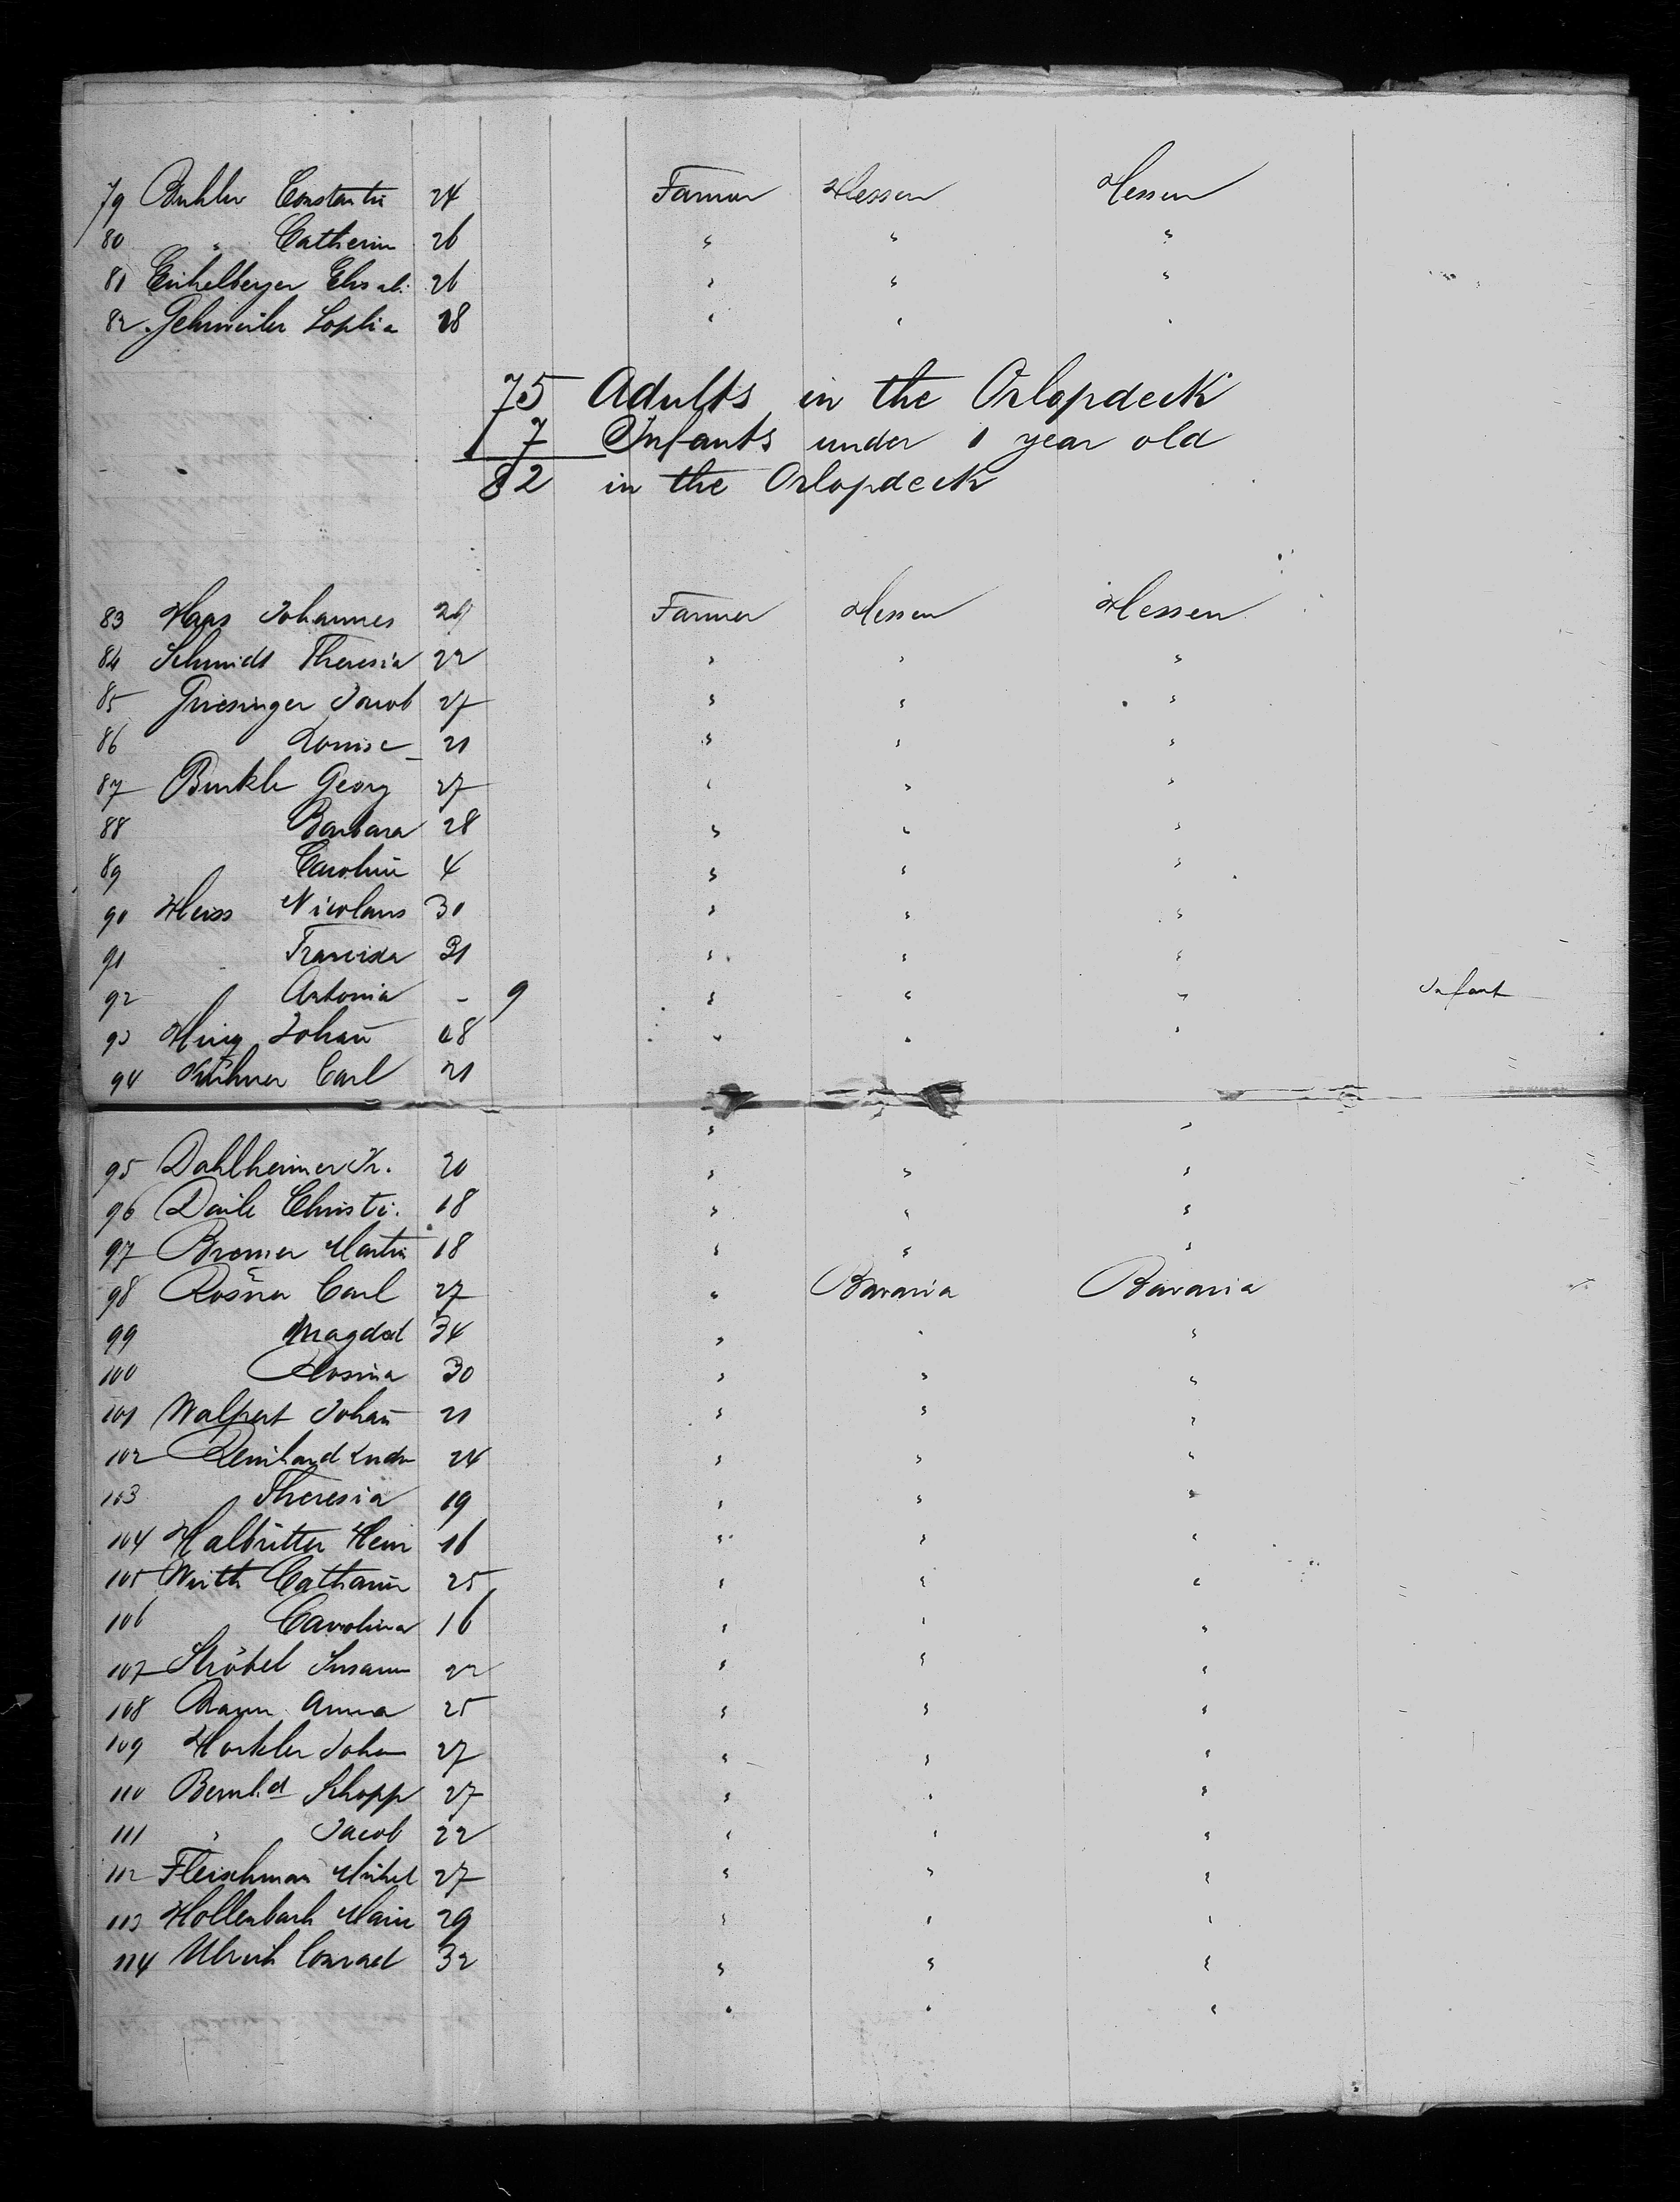 79 Buhler Constantin 24 Farmer Hessen Hessen
80 " Catherin 26 " " "
81 Eichelberger Elisab: 26 " " "
82 Gehrweiler Sophia 18 " " "
75 Adults in the Orlopdeck
7 Infants under 1 year old
82 in the Orlopdeck
83 Haas Johannes 29 Farmer Hessen Hessen
84 Schmidt Theresia 22 " " "
85 Griesinger Jacob 27 " " "
86 Louise 21 " " "
87 Burkle Georg 27 " " "
88 Barbara 28 " " "
89 Carolin 4 " " "
90 Heiss Nicolaus 30 " " "
91 Franciska 31 " " "
92 Antonia - 9 " " " Infant
93 Johañ 18 " " "
94 Kühner Carl 21 " "
95 Dahlheimer Fr. 20 " " "
96 Daile Christi. 18 " " "
97 Bremer Martin 18 " " "
98 Carl 27 " Bavaria Bavaria
99 Magdal 34 " " "
100 Rosina 30 " " "
101 Walpert Johañ 21 " " "
102 Reinhard Ludw 24 " " "
103 Theresia 19 " " "
104 Halbritter Hein 16 " " "
105 Wirth Catharin 25 " " "
106 Carolina 16 " " "
107 Ströbel Susann 22 " " "
108 Anna 25 " " "
109 Johan 27 " " "
110 Bernh.d Schopp 27 " " "
111 " Jacob 22 " " "
112 Fleischman Michel 27 " " "
113 Hollenbach Marie 29 " " "
114 Ulrich Conrad 32 " " "
" " "